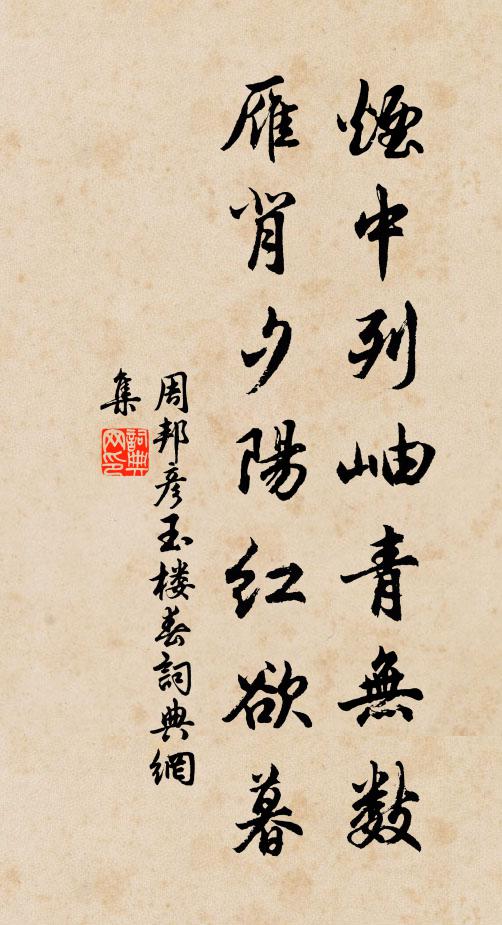 煙中列岫青無數
雁背夕陽紅欲暮
周邦彥玉楼春詞典網
集
詞典
网印